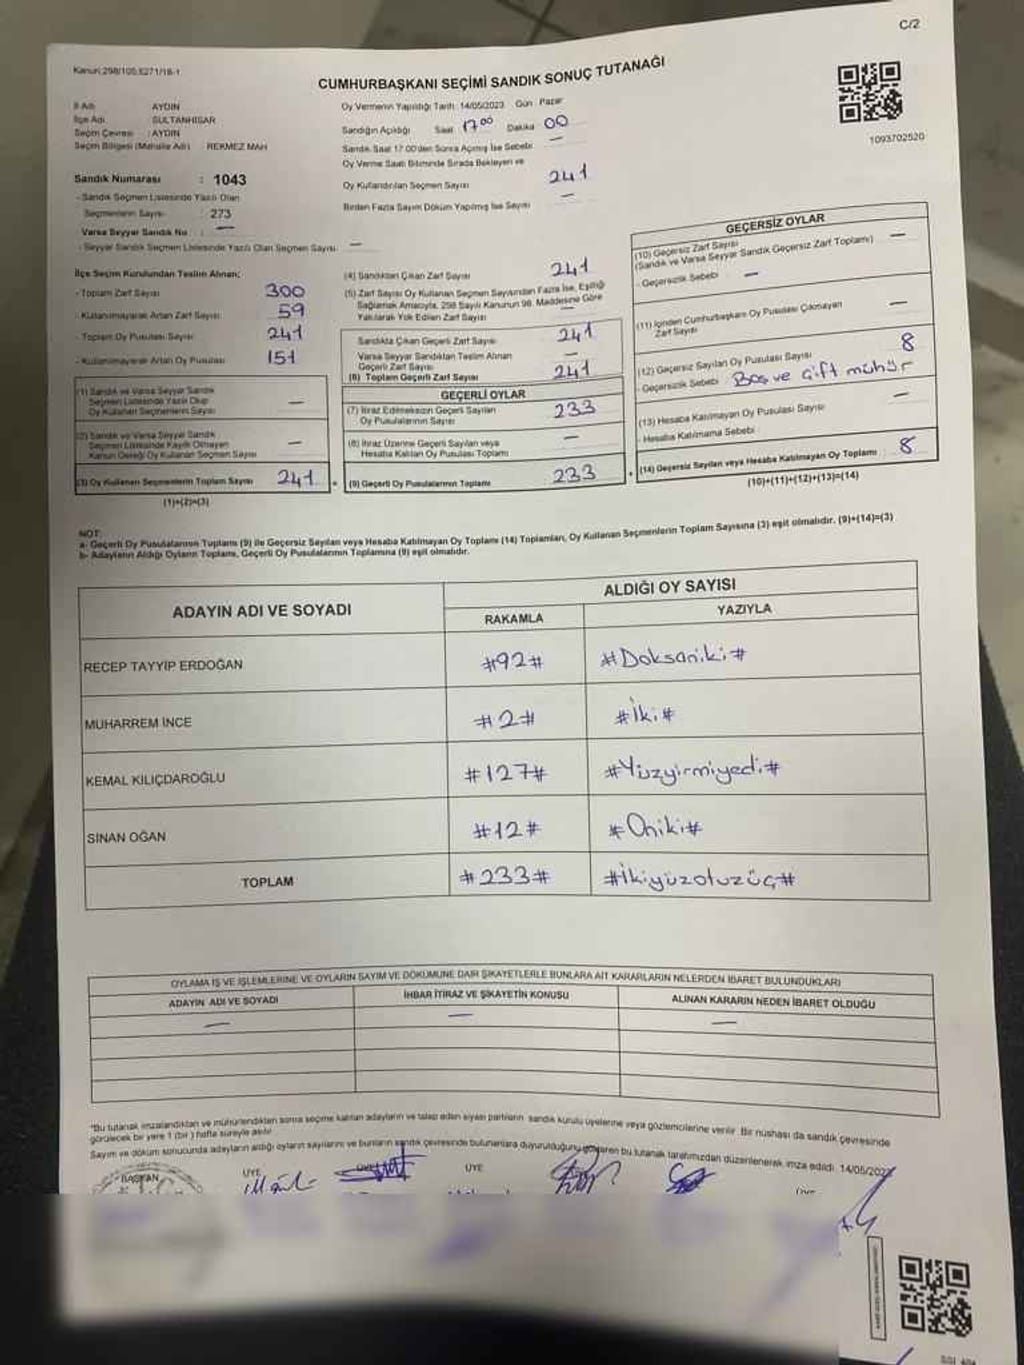 C/2
Kanun:298/105,6271/18-1
CUMHURBAŞKANI SEÇİMİ SANDIK SONUÇ TUTANAĞI
1093702520
İl Adı AYDIN
İlçe Adı SULTANHİSAR
Seçim Çevresi : AYDIN
Seçim Bölgesi (Mahalle Adı) REKMEZ MAH
Sandık Numarası : 1043
- Sandık Seçmen Listesinde Yazılı Olan
Seçmenlerin Sayısı : 273
Varsa Seyyar Sandık No : —
- Seyyar Sandık Seçmen Listesinde Yazılı Olan Seçmen Sayısı : —
Oy Vermenin Yapıldığı Tarih: 14/05/2023 Gün Pazar
Sandığın Açıldığı Saat 17 00 Dakika 00
Sandık Saat 17:00'den Sonra Açılmış İse Sebebi —
Oy Verme Saati Bitiminde Sırada Bekleyen ve
Oy Kullandırılan Seçmen Sayısı 241
Birden Fazla Sayım Döküm Yapılmış İse Sayısı —
İlçe Seçim Kurulundan Teslim Alınan;
- Toplam Zarf Sayısı 300
- Kullanılmayarak Artan Zarf Sayısı 59
- Toplam Oy Pusulası Sayısı 241
- Kullanılmayarak Artan Oy Pusulası 151
(1) Sandık ve Varsa Seyyar Sandık
Seçmen Listesinde Yazılı Olup
Oy Kullanan Seçmenlerin Sayısı —
(2) Sandık ve Varsa Seyyar Sandık
Seçmen Listesinde Kayıtlı Olmayan
Kanun Gereği Oy Kullanan Seçmen Sayısı —
(3) Oy Kullanan Seçmenlerin Toplam Sayısı 241
(1)+(2)=(3)
(4) Sandıktan Çıkan Zarf Sayısı 241
(5) Zarf Sayısı Oy Kullanan Seçmen Sayısından Fazla İse, Eşitliği
Sağlamak Amacıyla, 298 Sayılı Kanunun 98. Maddesine Göre
Yakılarak Yok Edilen Zarf Sayısı —
Sandıkta Çıkan Geçerli Zarf Sayısı 241
Varsa Seyyar Sandıktan Teslim Alınan
Geçerli Zarf Sayısı —
(6) Toplam Geçerli Zarf Sayısı 241
GEÇERLİ OYLAR
(7) İtiraz Edilmeksizin Geçerli Sayılan
Oy Pusulalarının Sayısı 233
(8) İtiraz Üzerine Geçerli Sayılan veya
Hesaba Katılan Oy Pusulası Toplamı —
(9) Geçerli Oy Pusulalarının Toplamı 233
GEÇERSİZ OYLAR
(10) Geçersiz Zarf Sayısı
(Sandık ve Varsa Seyyar Sandık Geçersiz Zarf Toplamı) —
- Geçersizlik Sebebi : —
(11) İçinden Cumhurbaşkanı Oy Pusulası Çıkmayan
Zarf Sayısı —
(12) Geçersiz Sayılan Oy Pusulası Sayısı 8
- Geçersizlik Sebebi : Boş ve çift mühür
(13) Hesaba Katılmayan Oy Pusulası Sayısı —
- Hesaba Katılmama Sebebi :
(14) Geçersiz Sayılan veya Hesaba Katılmayan Oy Toplamı 8
(10)+(11)+(12)+(13)=(14)
NOT:
a- Geçerli Oy Pusulalarının Toplamı (9) ile Geçersiz Sayılan veya Hesaba Katılmayan Oy Toplamı (14) Toplamları, Oy Kullanan Seçmenlerin Toplam Sayısına (3) eşit olmalıdır. (9)+(14)=(3)
b- Adayların Aldığı Oyların Toplamı, Geçerli Oy Pusulalarının Toplamına (9) eşit olmalıdır.
ADAYIN ADI VE SOYADI
ALDIĞI OY SAYISI
RAKAMLA YAZIYLA
RECEP TAYYİP ERDOĞAN #92# #Doksaniki#
MUHARREM İNCE #2# #İki#
KEMAL KILIÇDAROĞLU #127# #Yüzyirmiyedi#
SİNAN OĞAN #12# #Oniki#
TOPLAM #233# #İkiyüzotuzüç#
OYLAMA İŞ VE İŞLEMLERİNE VE OYLARIN SAYIM VE DÖKÜMÜNE DAİR ŞİKAYETLERLE BUNLARA AİT KARARLARIN NELERDEN İBARET BULUNDUKLARI
ADAYIN ADI VE SOYADI İHBAR İTİRAZ VE ŞİKAYETİN KONUSU ALINAN KARARIN NEDEN İBARET OLDUĞU
— — —
"Bu tutanak imzalandıktan ve mühürlendikten sonra seçime katılan adayların ve talep eden siyasi partilerin sandık kurulu üyelerine veya gözlemcilerine verilir. Bir nüshası da sandık çevresinde
görülecek bir yere 1 (bir) hafta süreyle asılır.
Sayım ve döküm sonucunda adayların aldığı oyların sayılarını ve bunların sandık çevresinde bulunanlara duyurulduğunu gösteren bu tutanak tarafımızdan düzenlenerek imza edildi. 14/05/2023
BAŞKAN ÜYE ÜYE